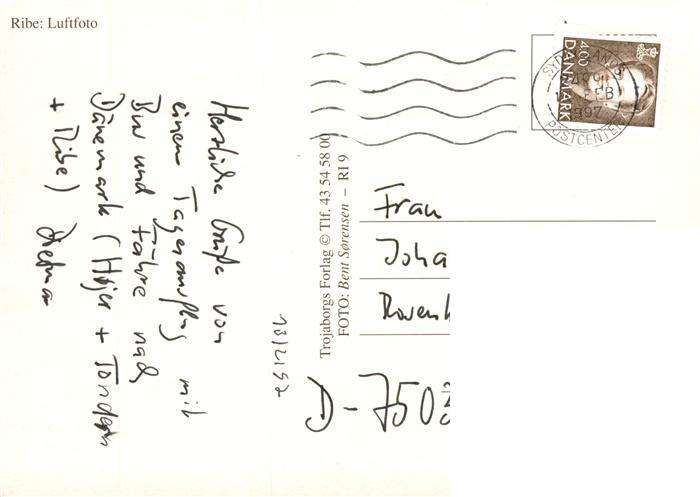 Ribe: Luftfoto
Herzliche Grüße von
einem Tagesausflug mit
Bus und Fähre nach
Dänemark (Højer + Tondern
+ Ribe) Dietmar
13/2/97
Trojaborgs Forlag © Tlf. 43 54 58 00
FOTO: Bent Sørensen – RI 9
4.00
DANMARK
FEB
1997
POSTCENTER
Frau
Joha
D-750